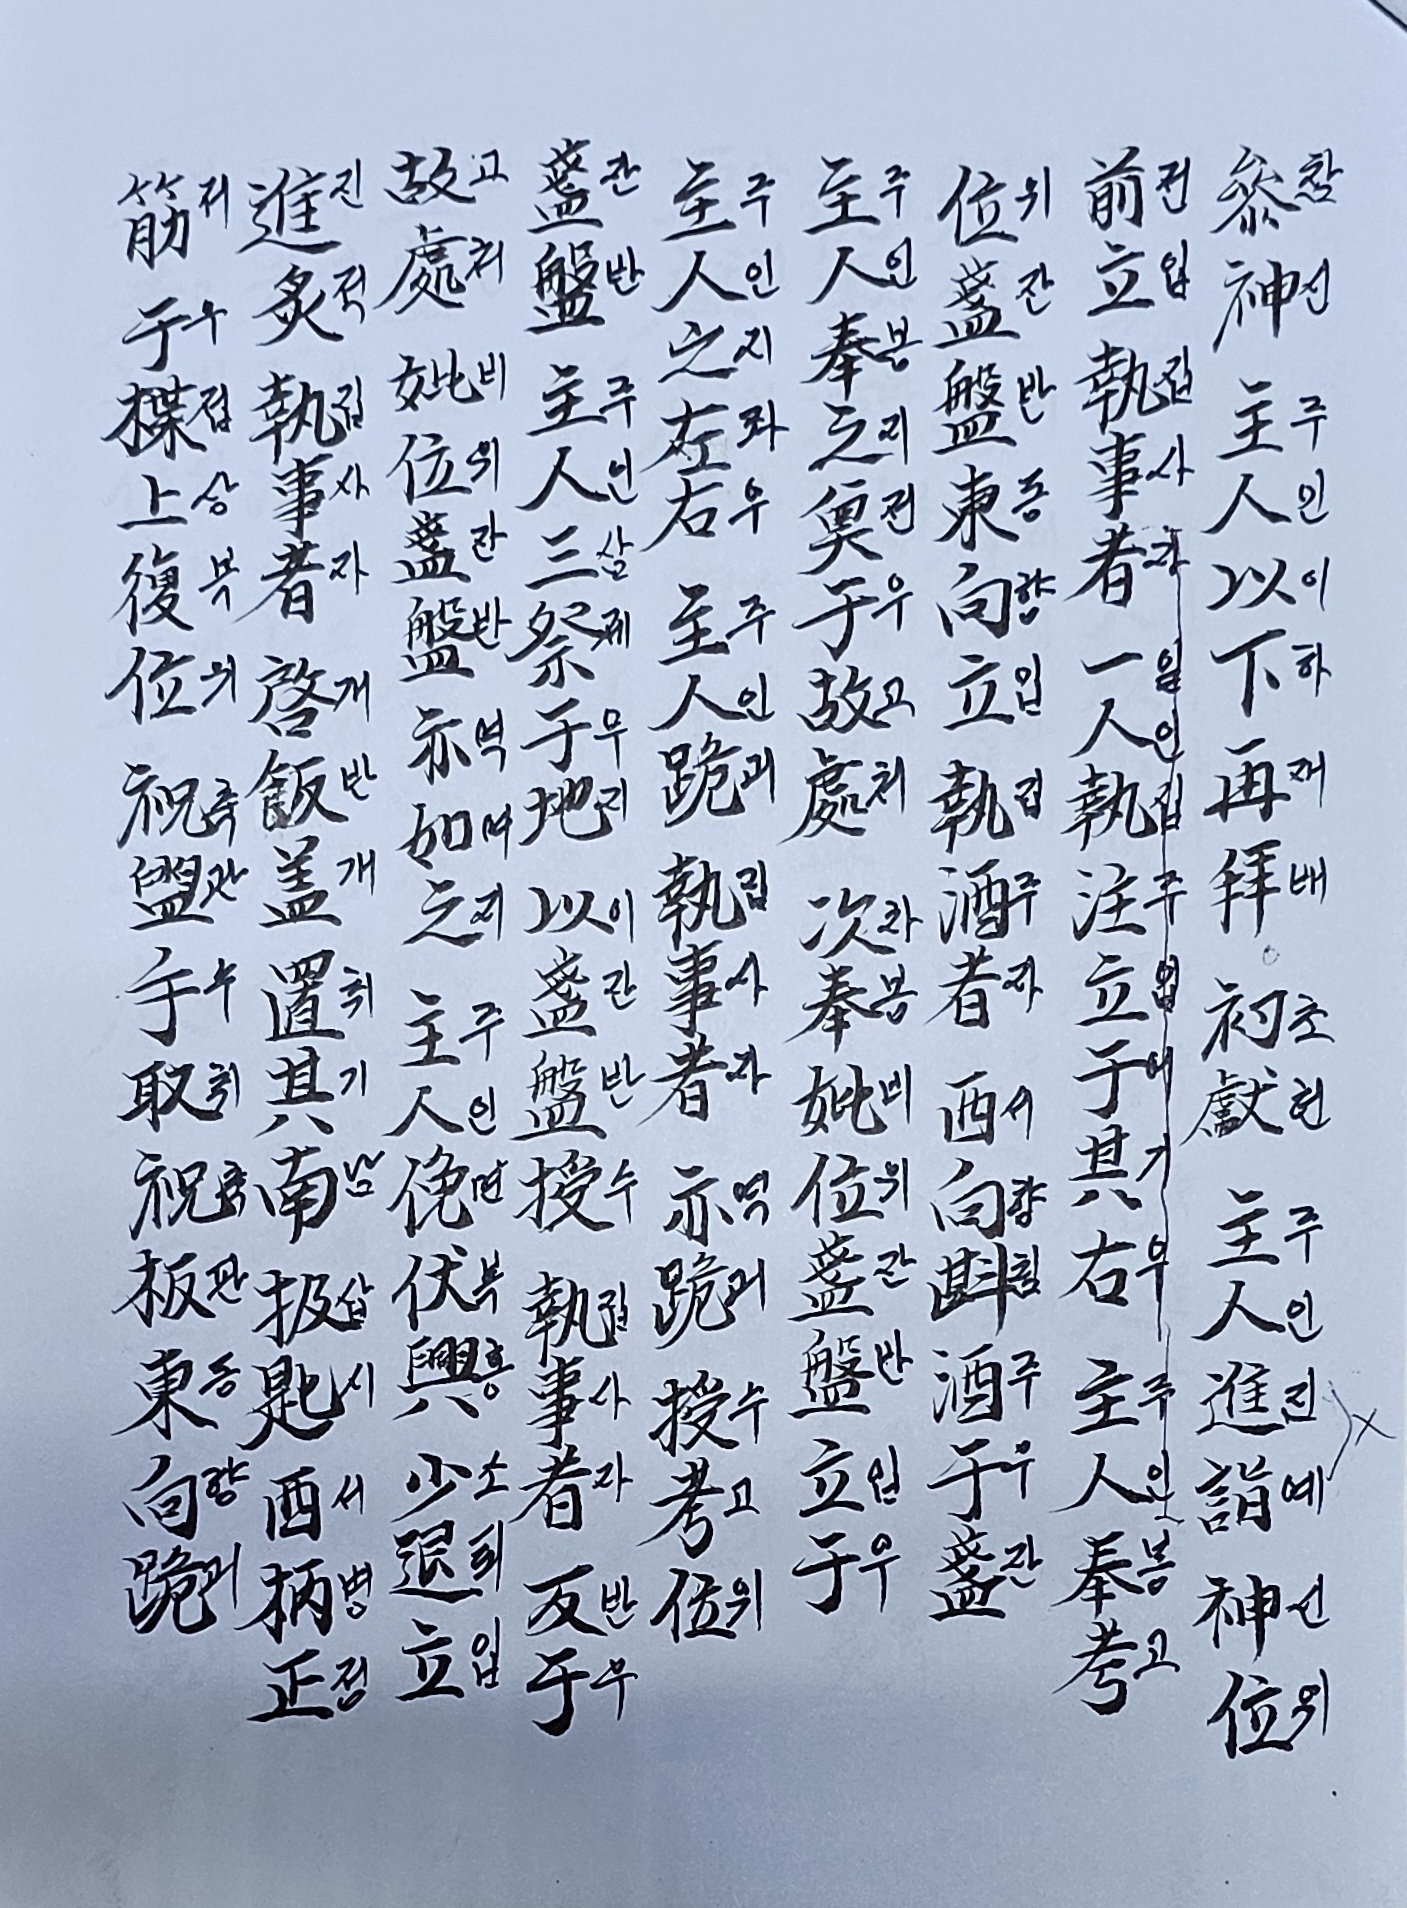 參참神신 主주人인以이下하再재拜배 初초獻헌 主주人인進진詣예神신位위
前전立입執집事사者자一일人인執집注주立입于어其기右우 主주人인奉봉考고
位위盞잔盤반東동向향立입執집酒주者자西서向향斟침酒주于우盞잔
主주人인奉봉之지奠전于우故고處처 次차奉봉妣비位위盞잔盤반立입于우
主주人인之지左좌右우 主주人인跪궤執집事사者자亦역跪궤授수考고位위
盞잔盤반主주人인三삼祭제于우地지以이盞잔盤반授수執집事사者자反반于우
故고處처妣비位위盞잔盤반亦역如여之지主주人인俛면伏복興흥少소退퇴立입
進진炙적執집事사者자啓개飯반盖개置치其기南남扱삽匙시西서柄병正정
筯저于우楪접上상復복位위祝축盥관手수取취祝축板판東동向향跪궤